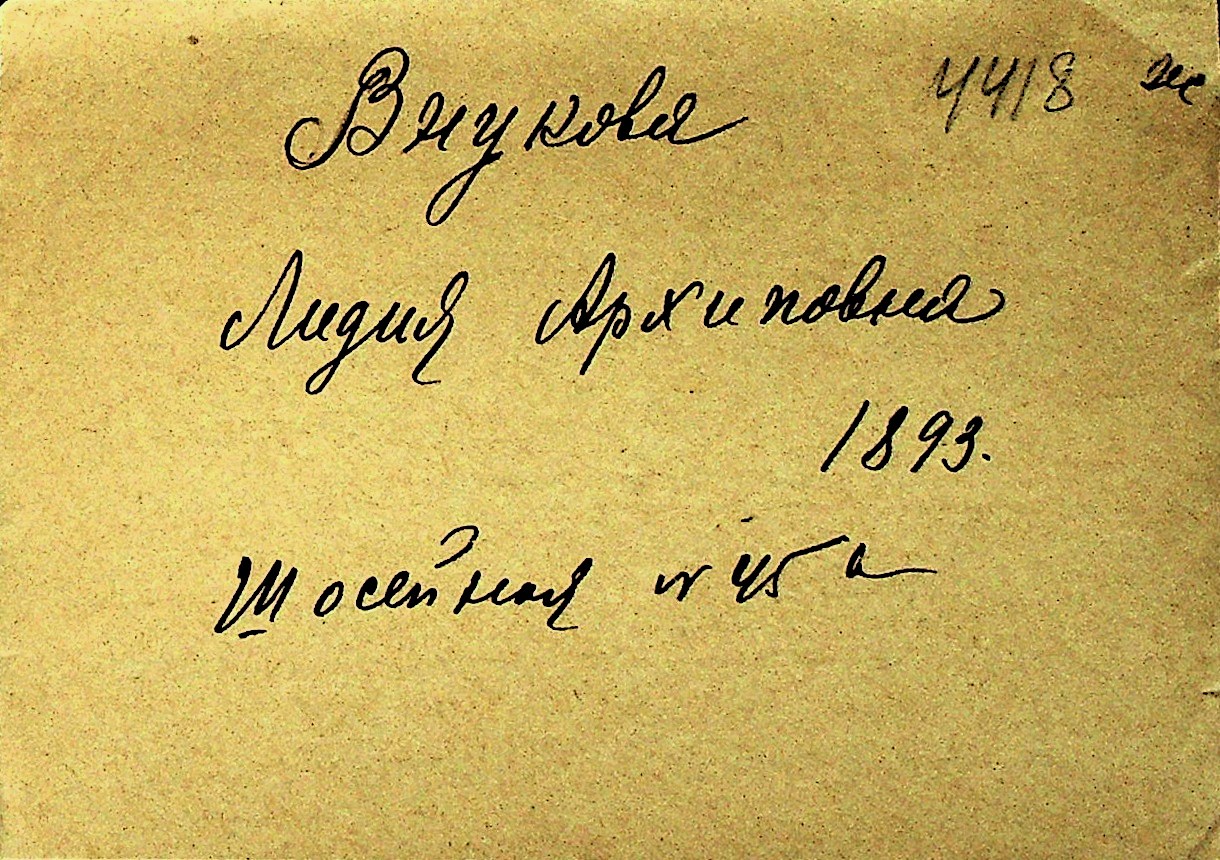 Внукова 4418 ж
Лидия Архиповна
1893.
Шосейная № 45 а